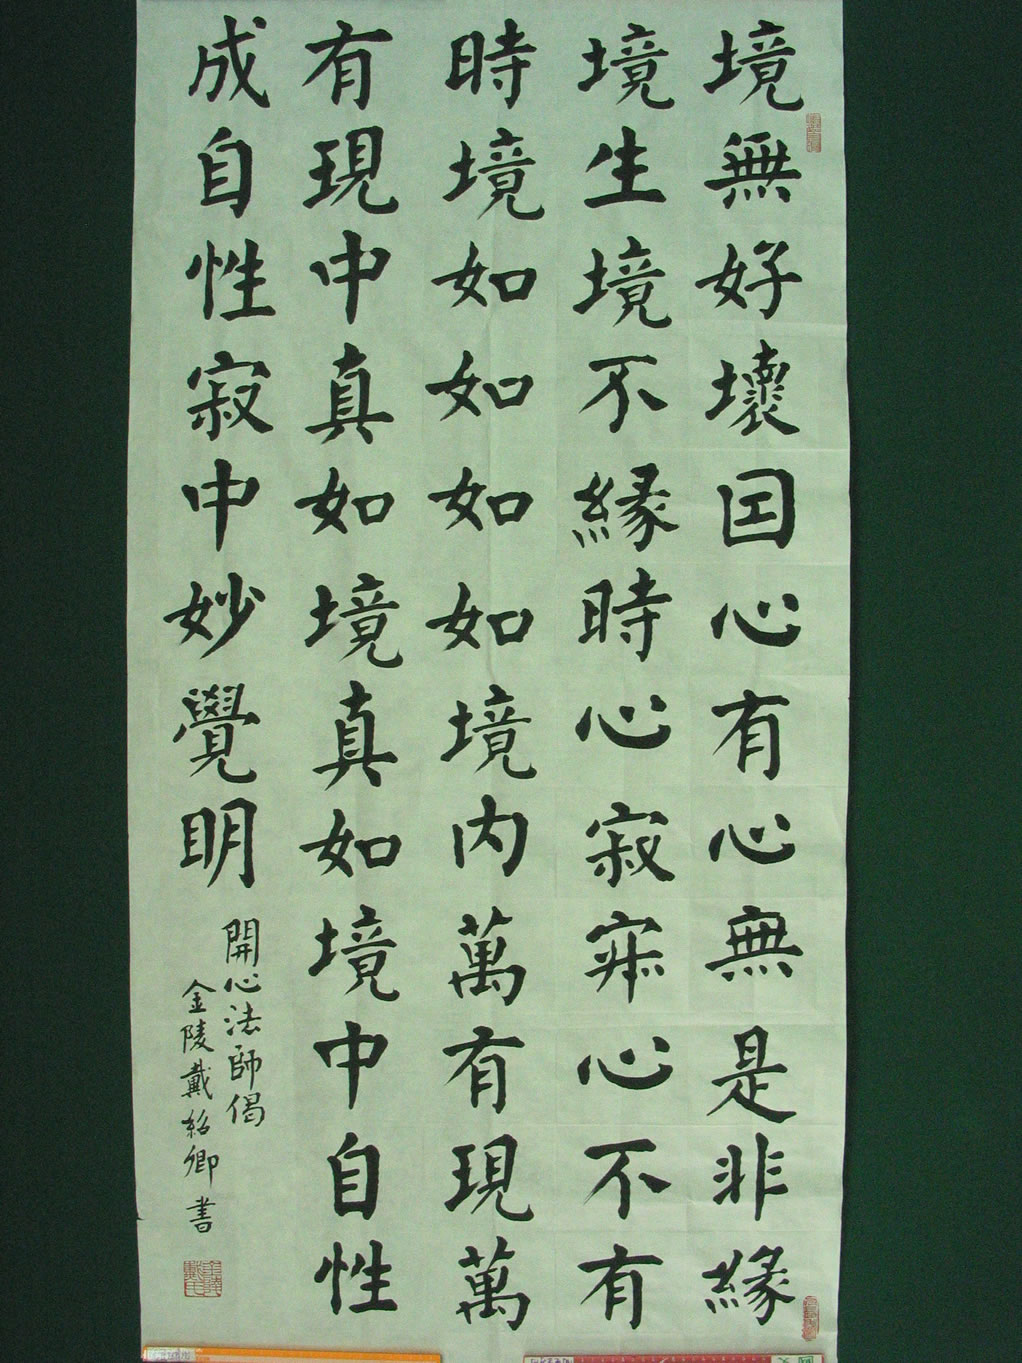 境無好壞因心有心無是非緣
境生境不緣時心寂心不有
時境如如如如境內萬有現萬
有現中真如境真如境中自性
成自性寂中妙覺明
開心法師偈
金陵戴紹卿書